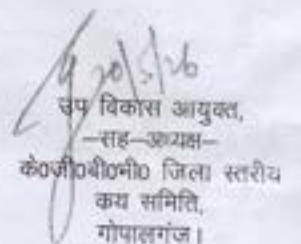 20/5/26
उप विकास आयुक्त,
–सह–अध्यक्ष–
के०जी०बी०भी० जिला स्तरीय
क्रय समिति,
गोपालगंज।